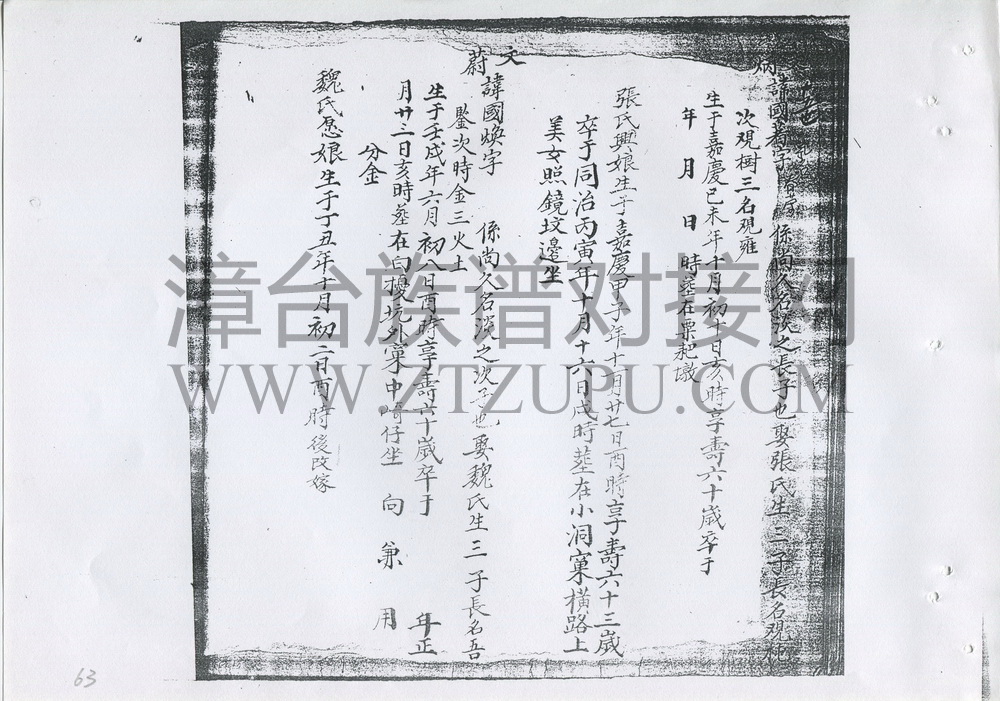 炳 諱國蕃字 係尚久名淡之長子也娶張氏生三子長名观枇
次观樹三名观雍
生于嘉慶己未年十月初十日亥時享壽六十歲卒于
年 月 日 時葬在粟耙墩
張氏興娘生于嘉慶甲子年十一月廿七日酉時享壽六十三歲
卒于同治丙寅年十月十六日戌時葬在小洞窠橫路上
美女照鏡坟邊坐
文
蔚 諱國煥字 係尚久名淡之次子也娶魏氏生三子長名吾
鑒次時金三火土
生于壬戌年六月初八日酉時享壽六十歲卒于 年正
月廿三日亥時葬在白墘坑外窠中崎仔坐 向 兼 用
分金
魏氏愿娘生于丁丑年十月初二日酉時後改嫁
漳台族谱对接网
WWW.ZTZUPU.COM
63